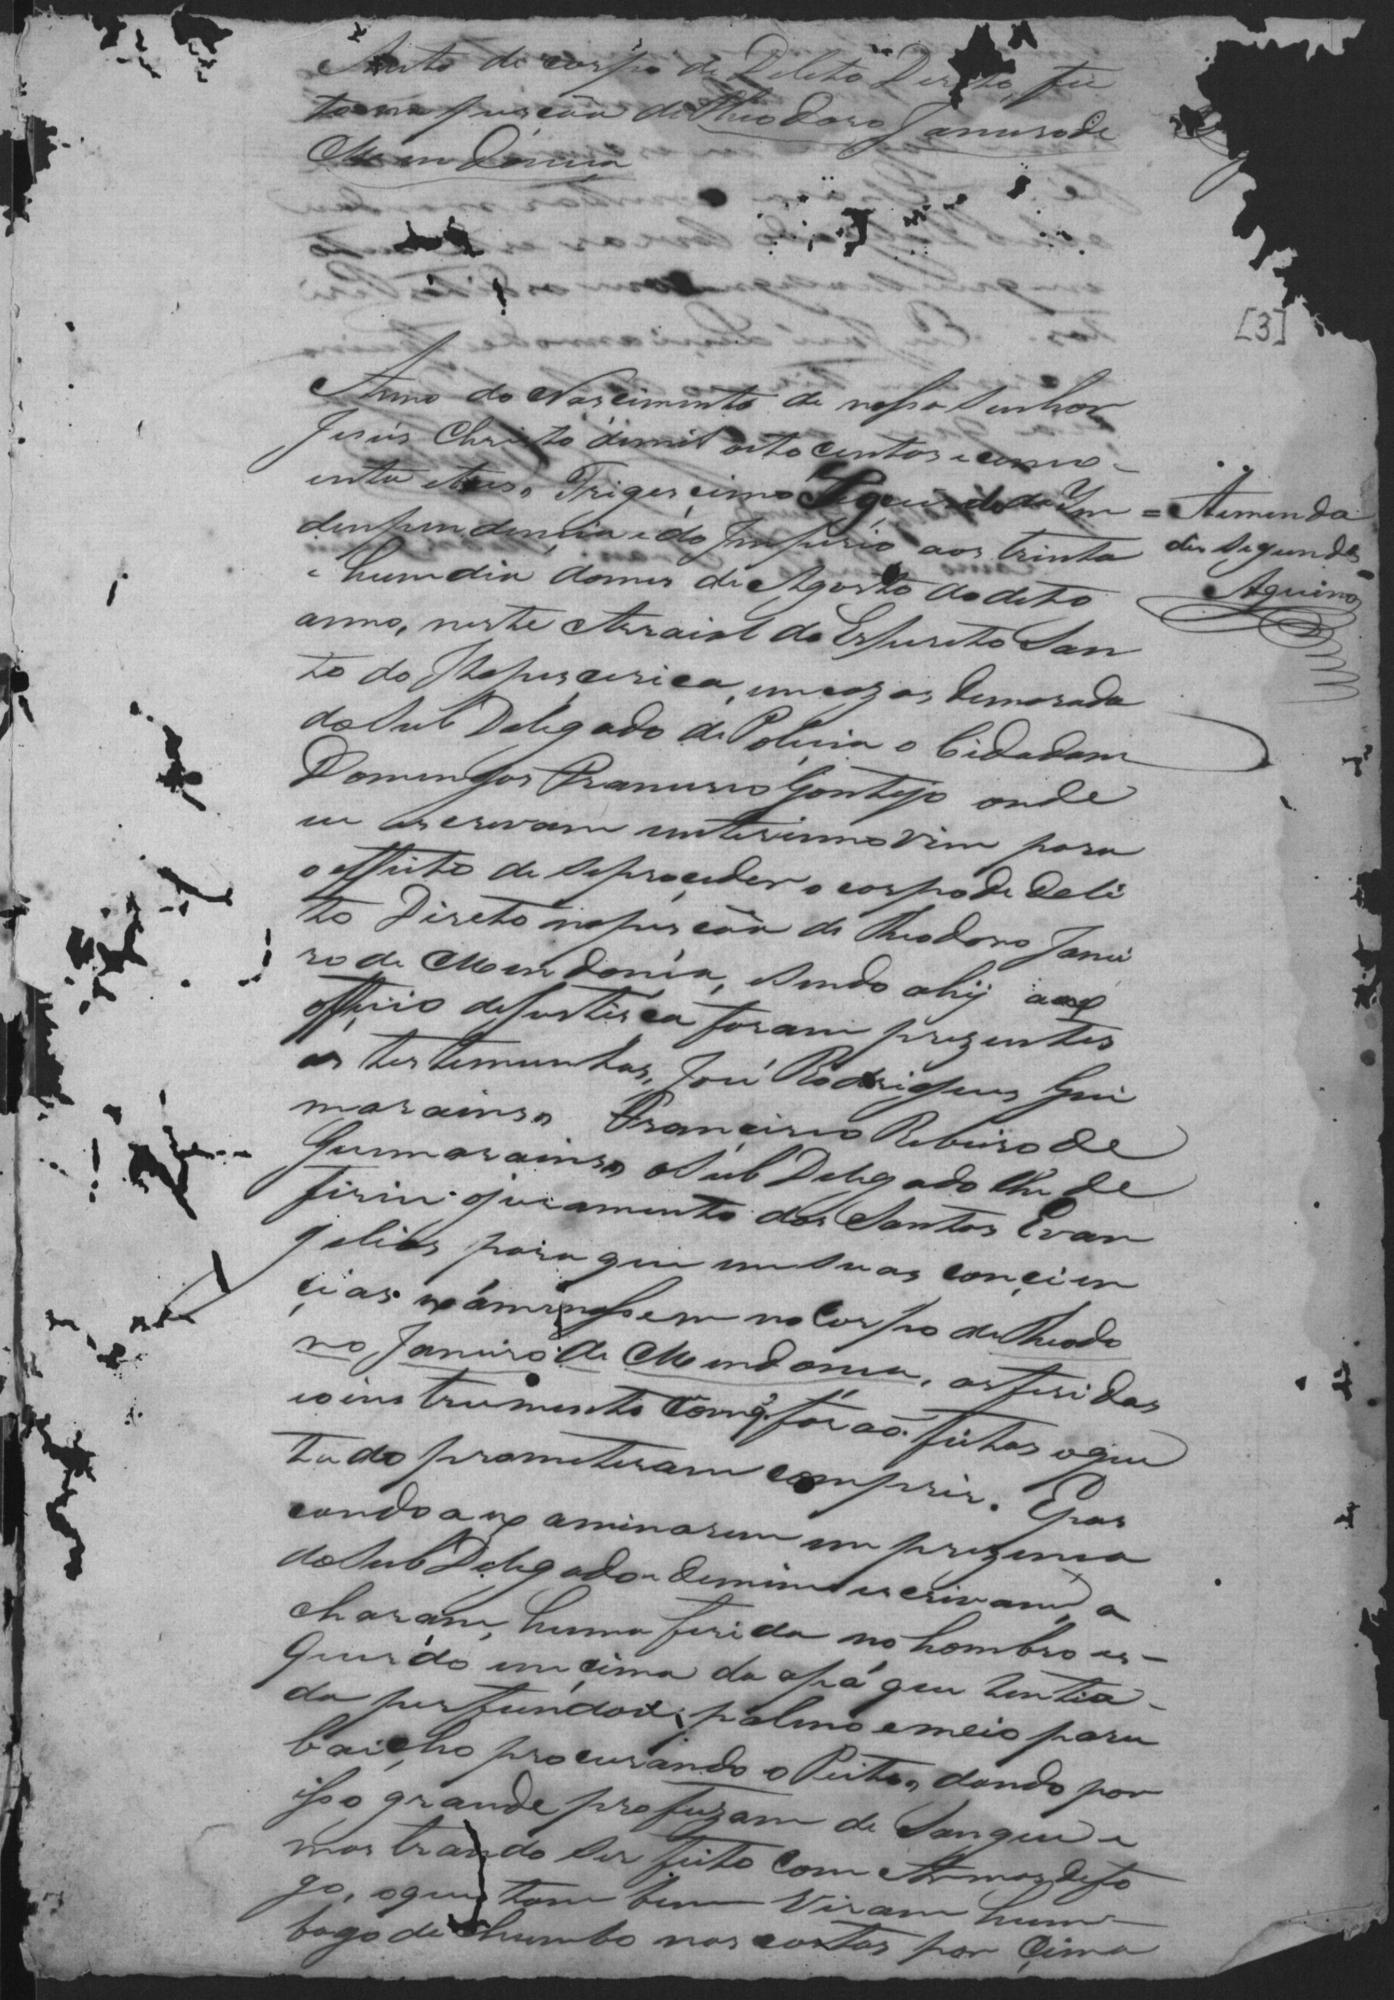 Auto de corpo de Delito Direto, fei
to na pescôa de Theodoro Janurode
Mendonca
[3]
Anno do Nascimento de nosso Senhor
Jesús Christo demil oito centos e cinco-
enta etres, Trigescimo Segundo da Yn
denpendencia e do Imperio aos trinta
e hum dia domes de Agosto do dito
anno, neste Arraial do Espirito San
to do Itapiscerica, em cazas demorada
do Sub Delegado de Policia o Cidadam
Domingos Francisco Gontijo onde
eu escrivam enterinno vim para
o effeito de seproceder o corpo de deli
to Direto napescôa de Theodoro Janei
ro de Mendonça, esendo ahij ao
officio dejustisca foram prezentes
as testemunhas, José Rodrigues Gui
marains, Francisco Ribeiro de
Guimarains, o Sub Delegado lhe de
firio o juramento dos Santos Evan
gelios para que em suas concien
cias examinassem no Corpo de Theodo
ro Janeiro de Mendonca, as feridas
eo instrumento comq.' foraõ feitas o que
tudo prometeram comprir. Epas
cando a examinarem em prezenca
do Sub Delegado e demim escrivam, a
charam, huma ferida no hombro es-
querdo em cima da apá que tentia-
da perfundou, palmo e meio para
baicho procurando o Peito, dando por
isso grande profuzam de Sangue e
mostrando ser feito com Armas defo
go, o que tam bem viram hum
bago de chumbo nas costas por Cima
= Aemenda
diz segundo =
Aquino